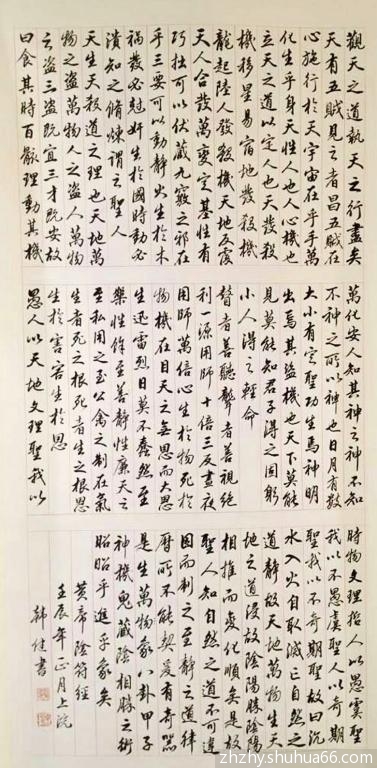 觀天之道執天之行盡矣
天有五賊見之者昌五賊在
心施行於天宇宙在乎手萬
化生乎身天性人也人心機也
立天之道以定人也天發殺
機移星易宿地發殺機
龍起陸人發殺機天地反覆
天人合發萬變定基性有
巧拙可以伏藏九竅之邪在
乎三要可以動靜火生於木
禍發必尅奸生於國時動必
潰知之脩煉謂之聖人
天生天殺道之理也天地萬
物之盜萬物人之盜人萬物
之盜三盜既宜三才既安故
曰食其時百骸理動其機
萬化安人知其神之神不知
不神之所以神也日月有數
大小有定聖功生焉神明
出焉其盜機也天下莫能
見莫能知君子得之固躬
小人得之輕命
瞽者善聽聾者善視絕
利一源用師十倍三反晝夜
用師萬倍心生於物死於
物機在目天之無恩而大恩
生迅雷烈日莫不蠢然至
樂性餘至善靜性廉天之
至私用之至公禽之制在氣
生者死之根死者生之根恩
生於害害生於恩
愚人以天地文理聖我以
時物文理哲人以愚虞聖
我以不愚虞聖人以奇期
聖我以不奇期聖故曰沉
水入火自取滅亡自然之
道靜故天地萬物生天
地之道浸故陰陽勝陰陽
相推而變化順矣是故
聖人知自然之道不可違
因而制之至靜之道律
曆所不能契爰有奇器
是生萬物象八卦甲子
神機鬼藏陰相勝之術
昭昭乎進乎象矣
黃帝陰符經
壬辰年正月上浣
韓健書
zhzhyshuhua66.com